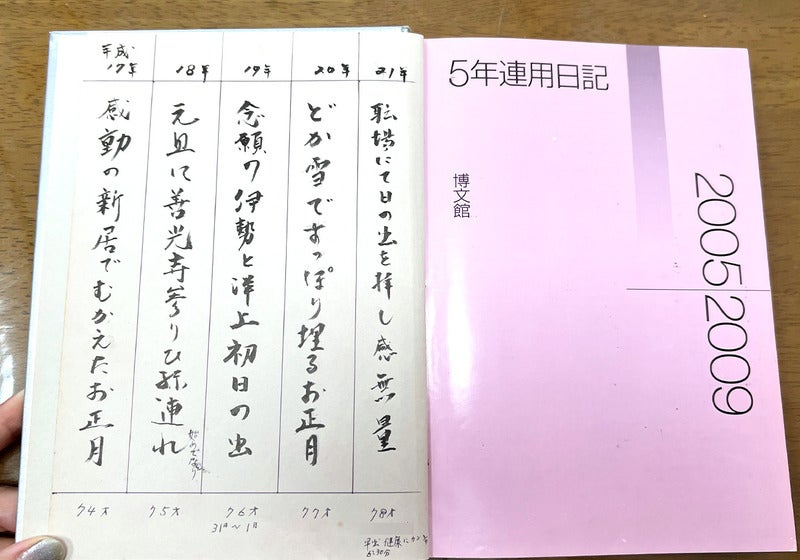 平成
17年
感動の新居でむかえたお正月
74才
18年
元旦に善光寺参りひ孫連れ
75才
19年
念願の伊勢と洋上初日の出
76才
31日〜1日
20年
どか雪ですっぽり埋るお正月
77才
21年
にて日の出を拝し感無量
78才
5年連用日記
博文館
2005 2009